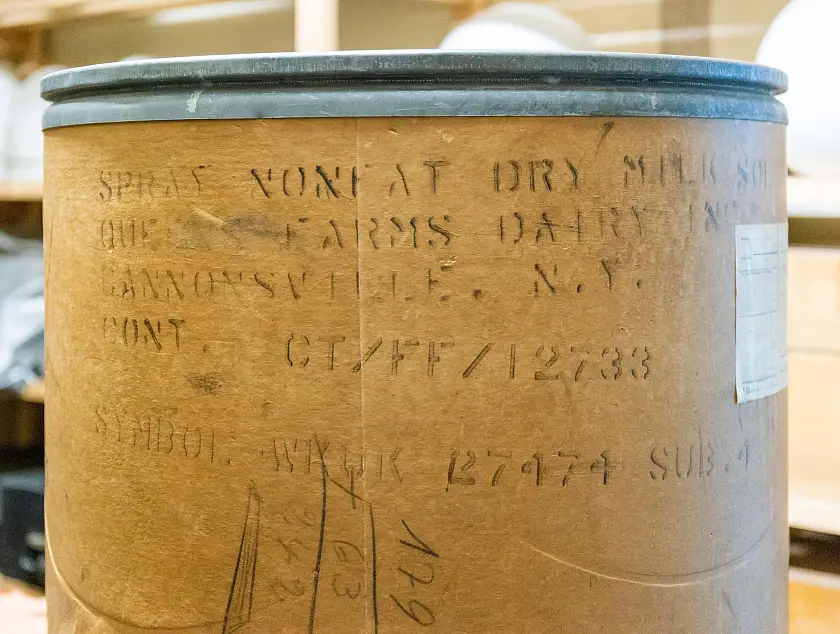 SPRAY NONFAT DRY MILK SOL
FARMS DAIRY INC
CANNONSVILLE. N.Y.
CONT. CT/FF/12733
SYMBOL 27474 SUB.4
63
179